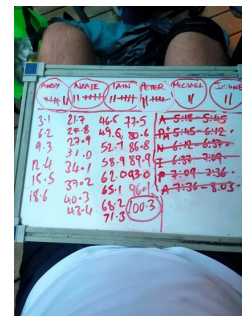 ANDY NEALE IAIN PETER MICHAEL
3.1 21.7 46.5 77.5 A 5:18-5:45
6.2 24.8 49.6 80.6 5:45-6:12
9.3 27.9 52.7 86.8 N 6:12-6:37
12.4 31.0 58.9 89.9 I 6:37-7:09
15.5 34.1 62.0 93.0 P 7:09-7:36
18.6 37.2 65.1 96.1 A 7:36-8:03
40.3 68.2 100.3
43.4 71.3